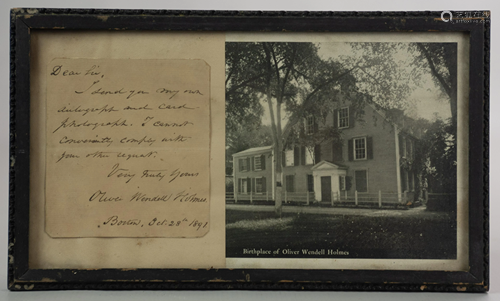 Dear Sir,
I send you my own
autograph and card
photograph. I cannot
conveniently comply with
your other request.
Very Truly Yours
Oliver Wendell Holmes
Boston, Oct. 28th 189
Birthplace of Oliver Wendell Holmes